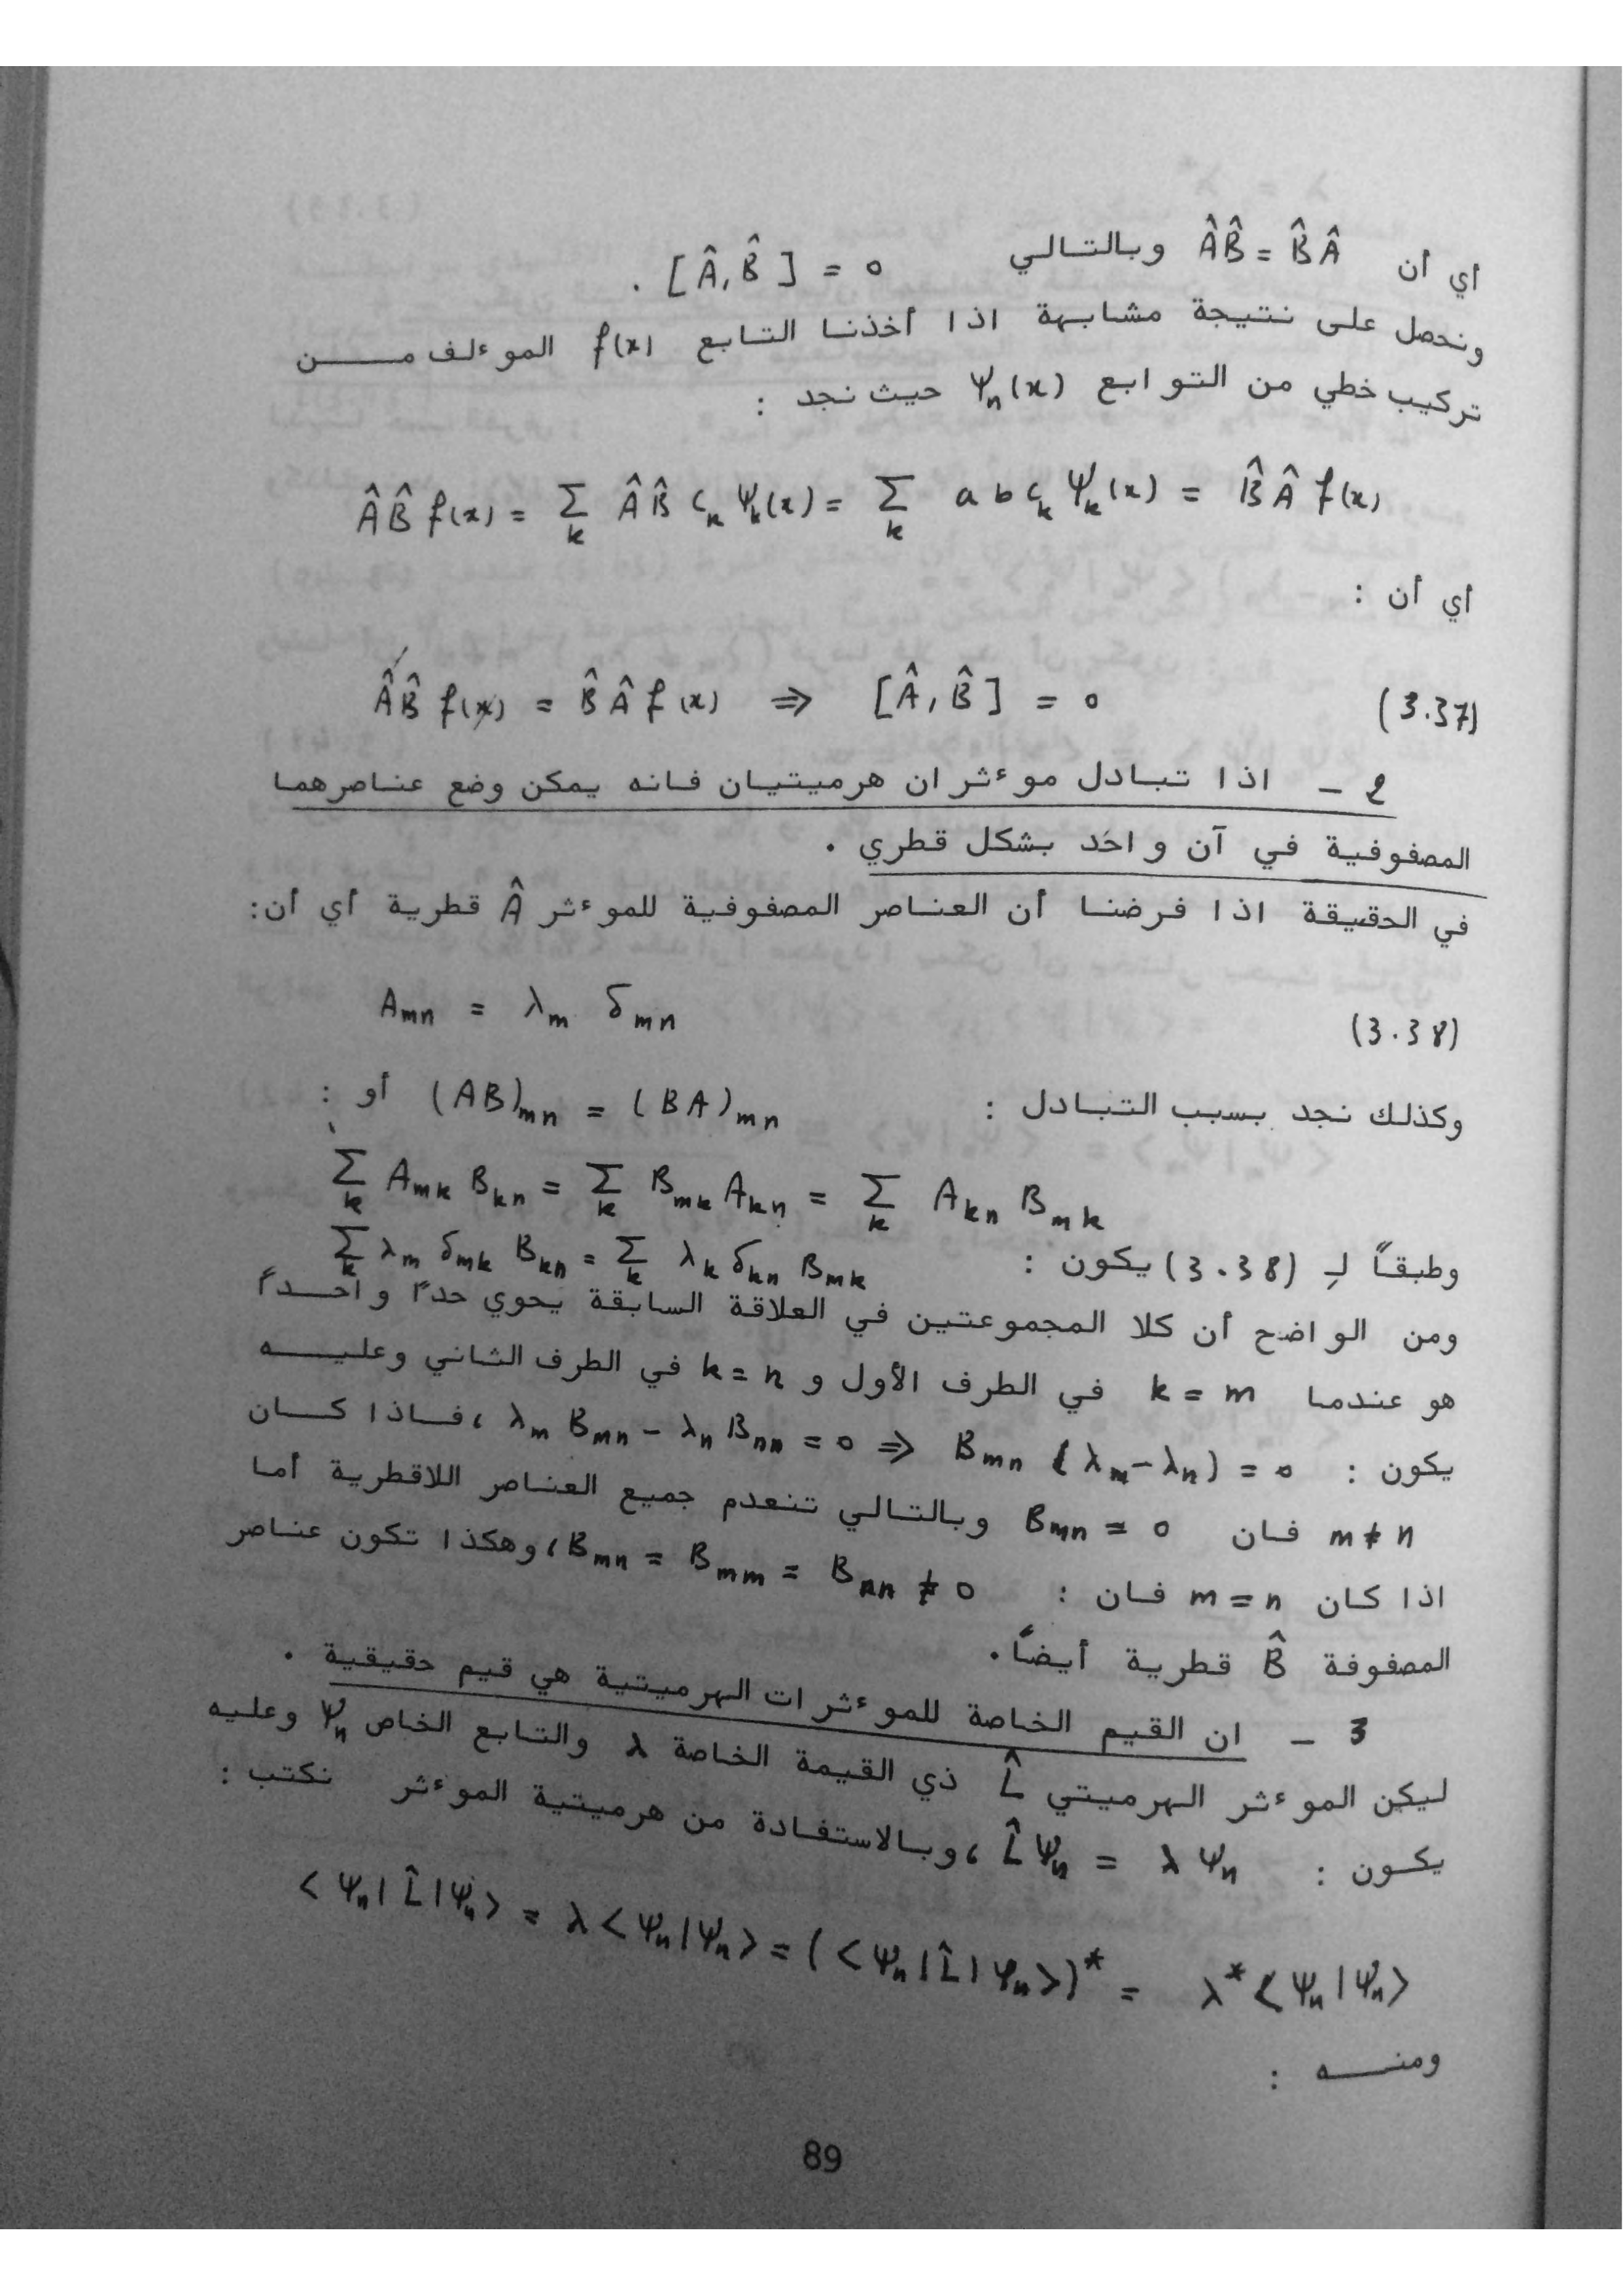 أي أن ÂB̂ = B̂Â وبالتالي [Â, B̂] = 0 .
ونحصل على نتيجة مشابهة اذا أخذنا التابع f(x) الموءلف من
تركيب خطي من التوابع Ψₙ(x) حيث نجد :
ÂB̂ f(x) = Σ_k ÂB̂ c_k Ψ_k(x) = Σ_k a b c_k Ψ_k(x) = B̂Â f(x)
أي أن :
ÂB̂ f(x) = B̂Â f(x) ⇒ [Â, B̂] = 0 (3.37)
2 - اذا تبادل موءثران هرميتيان فانه يمكن وضع عناصرهما
المصفوفية في آن واحد بشكل قطري .
في الحقيقة اذا فرضنا أن العناصر المصفوفية للموءثر Â قطرية أي أن:
A_mn = λ_m δ_mn (3.38)
وكذلك نجد بسبب التبادل : (AB)_mn = (BA)_mn أو :
Σ_k A_mk B_kn = Σ_k B_mk A_kn = Σ_k A_kn B_mk
وطبقاً لـِ (3.38) يكون : Σ_k λ_m δ_mk B_kn = Σ_k λ_k δ_kn B_mk
ومن الواضح أن كلا المجموعتين في العلاقة السابقة يحوي حداً واحداً
هو عندما k = m في الطرف الأول و k = n في الطرف الثاني وعليه
يكون : λ_m B_mn - λ_n B_nn = 0 ⇒ B_mn (λ_m - λ_n) = 0 ،فاذا كان
m ≠ n فان B_mn = 0 وبالتالي تنعدم جميع العناصر اللاقطرية أما
اذا كان m = n فان : B_mn = B_mm = B_nn ≠ 0 ،وهكذا تكون عناصر
المصفوفة B̂ قطرية أيضاً.
3 - ان القيم الخاصة للموءثرات الهرميتية هي قيم حقيقية .
ليكن الموءثر الهرميتي L̂ ذي القيمة الخاصة λ والتابع الخاص Ψₙ وعليه
يكون : L̂Ψₙ = λΨₙ ،وبالاستفادة من هرميتية الموءثر نكتب :
<Ψₙ|L̂|Ψₙ> = λ<Ψₙ|Ψₙ> = (<Ψₙ|L̂|Ψₙ>)* = λ*<Ψₙ|Ψₙ>
ومنه :
89